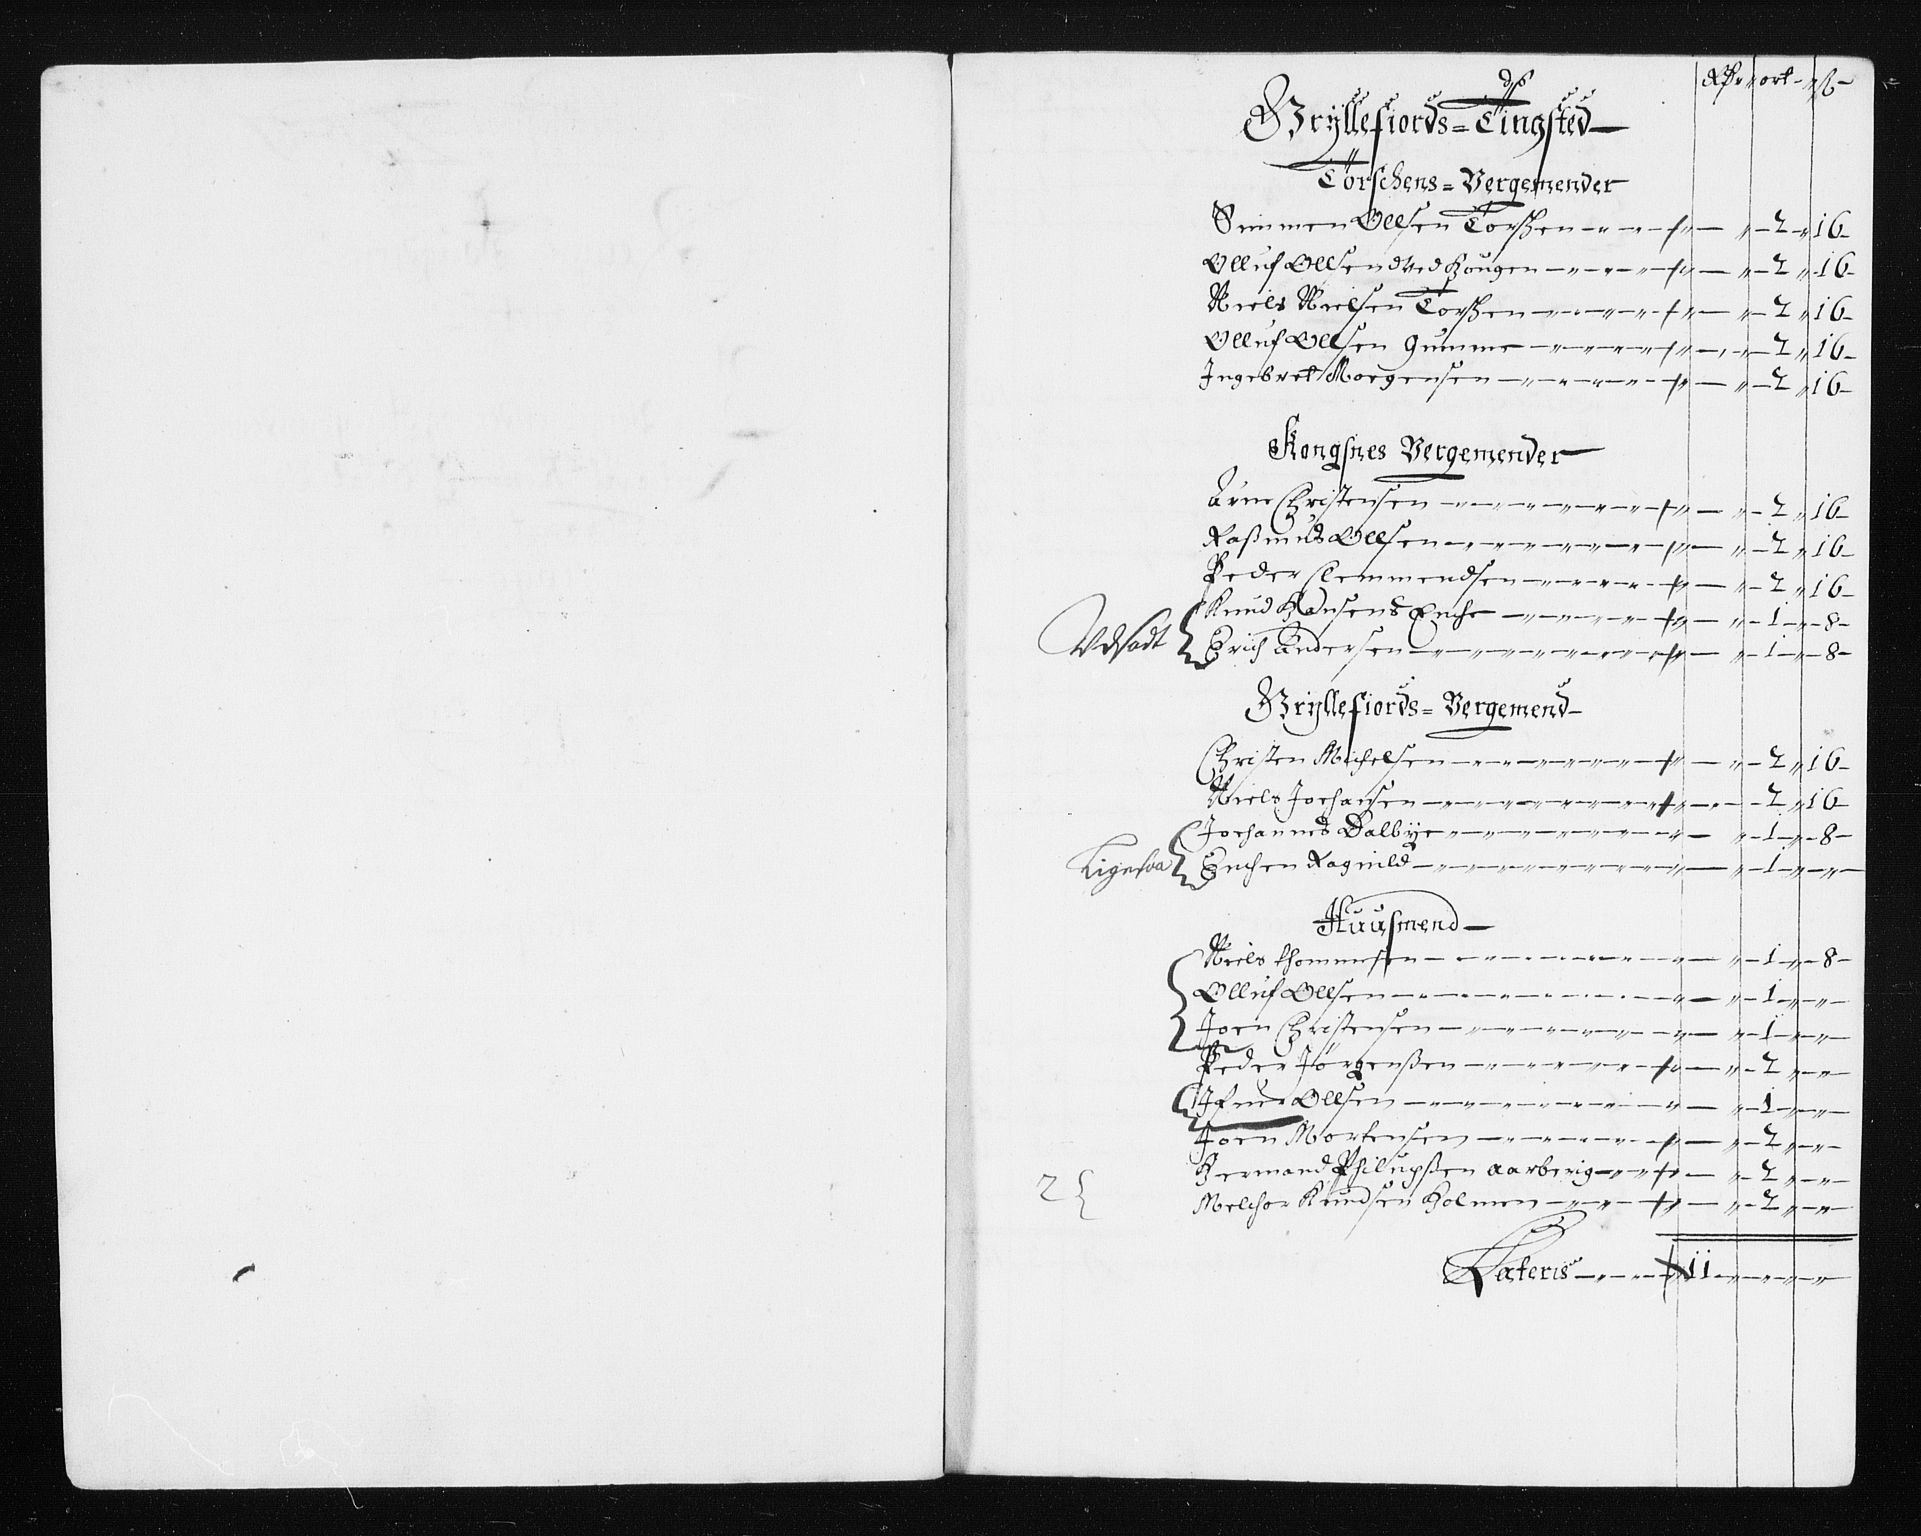 Rdr ort ß
Gryllefiords = Tingsted
Torschens = Vergemender
Simmen Ollsen Torschen - 2 16
Olluf Ollsen ved Hougen - 2 16
Niels Nielsen Torschen - 2 16
Olluf Ollsen Gumme - 2 16
Ingebret Moegensen - 2 16
Kongsnes Vergemender
Arne Christensen - 2 16
Raßmus Ollsen - 2 16
Peder Clemmendsen - 2 16
Knud Hansens Enche - 1 8
Udsadt { Erich Andersen - 1 8
Gryllefiords = Vergemend
Christen Michelsen - 2 16
Niels Jochansen - 2 16
Jochannes Dalbye - 1 8
Ligesaa { Enchen Ragnild - 1
Huusmend
Niels Thommesen - 1 8
Olluf Ollsen - 1
Joen Christensen - 1
Peder Jørgenßen - 2
Ollsen - 1
Joen Mortensen - 2
Hermand Philupßen Aarberig - 2
2 { Melchor Knudsen Holmen - 2
Lateris - 11